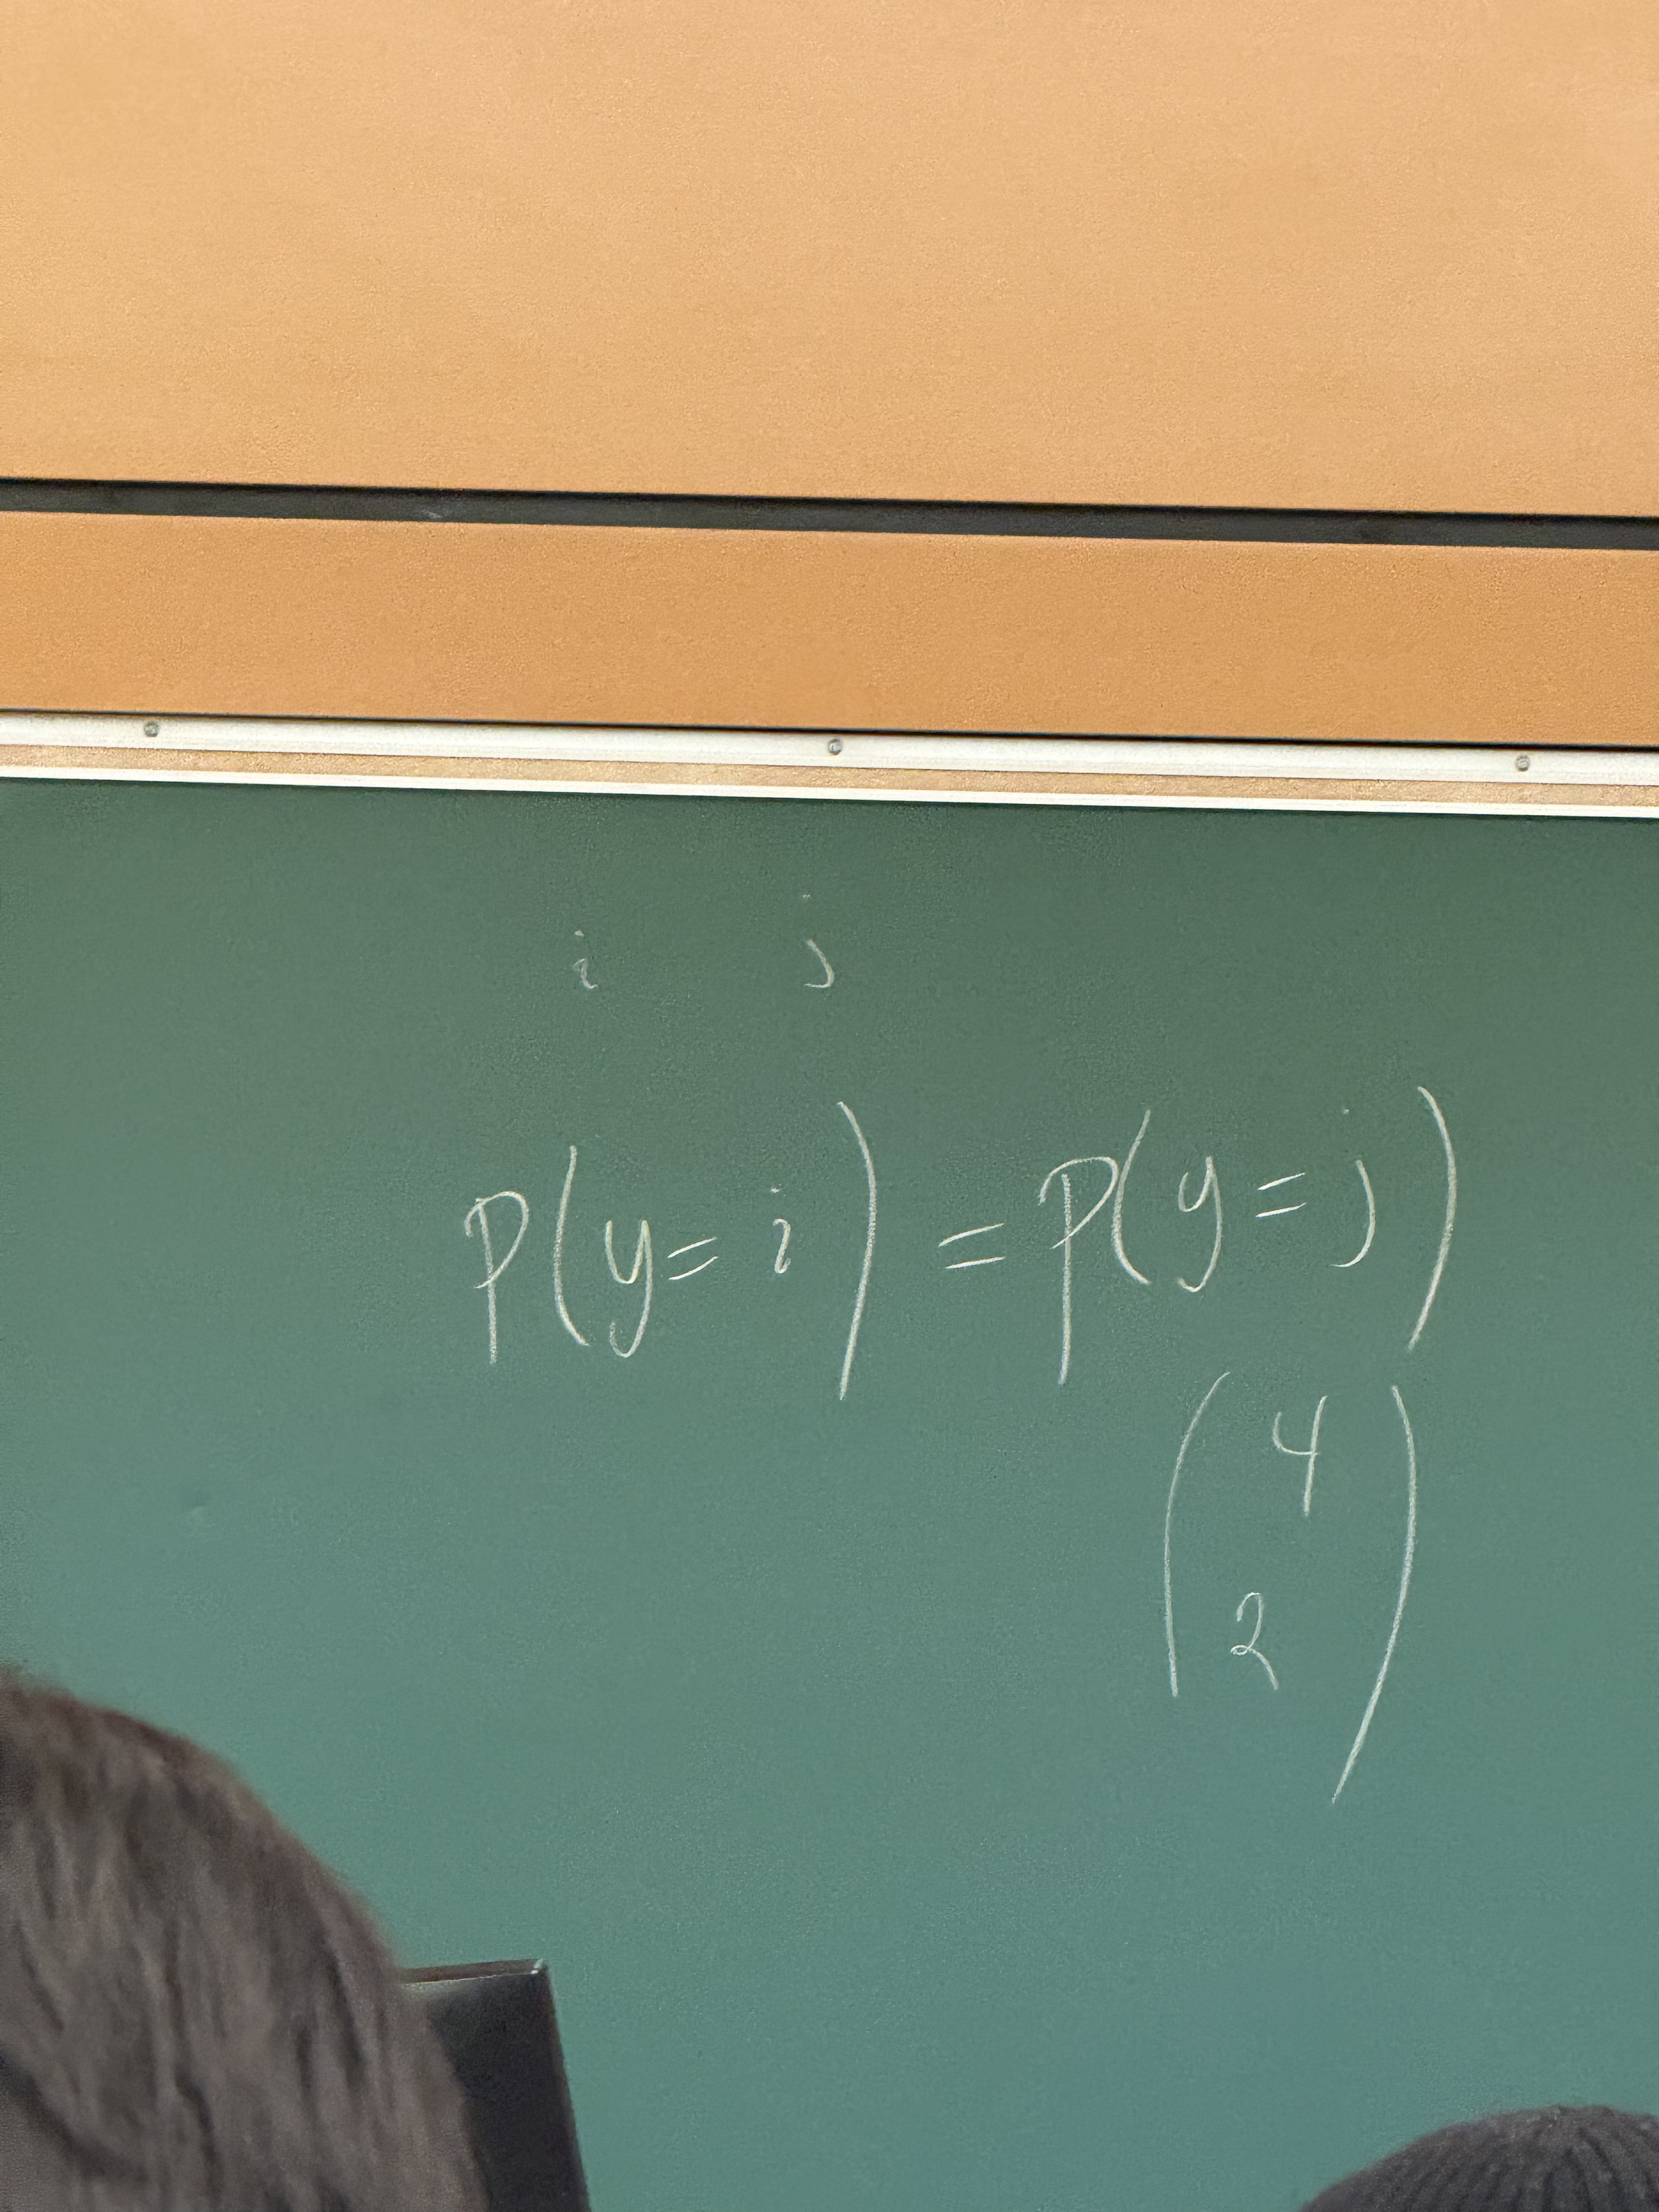 i j
P(y=i) = P(y=j)
(4
2)